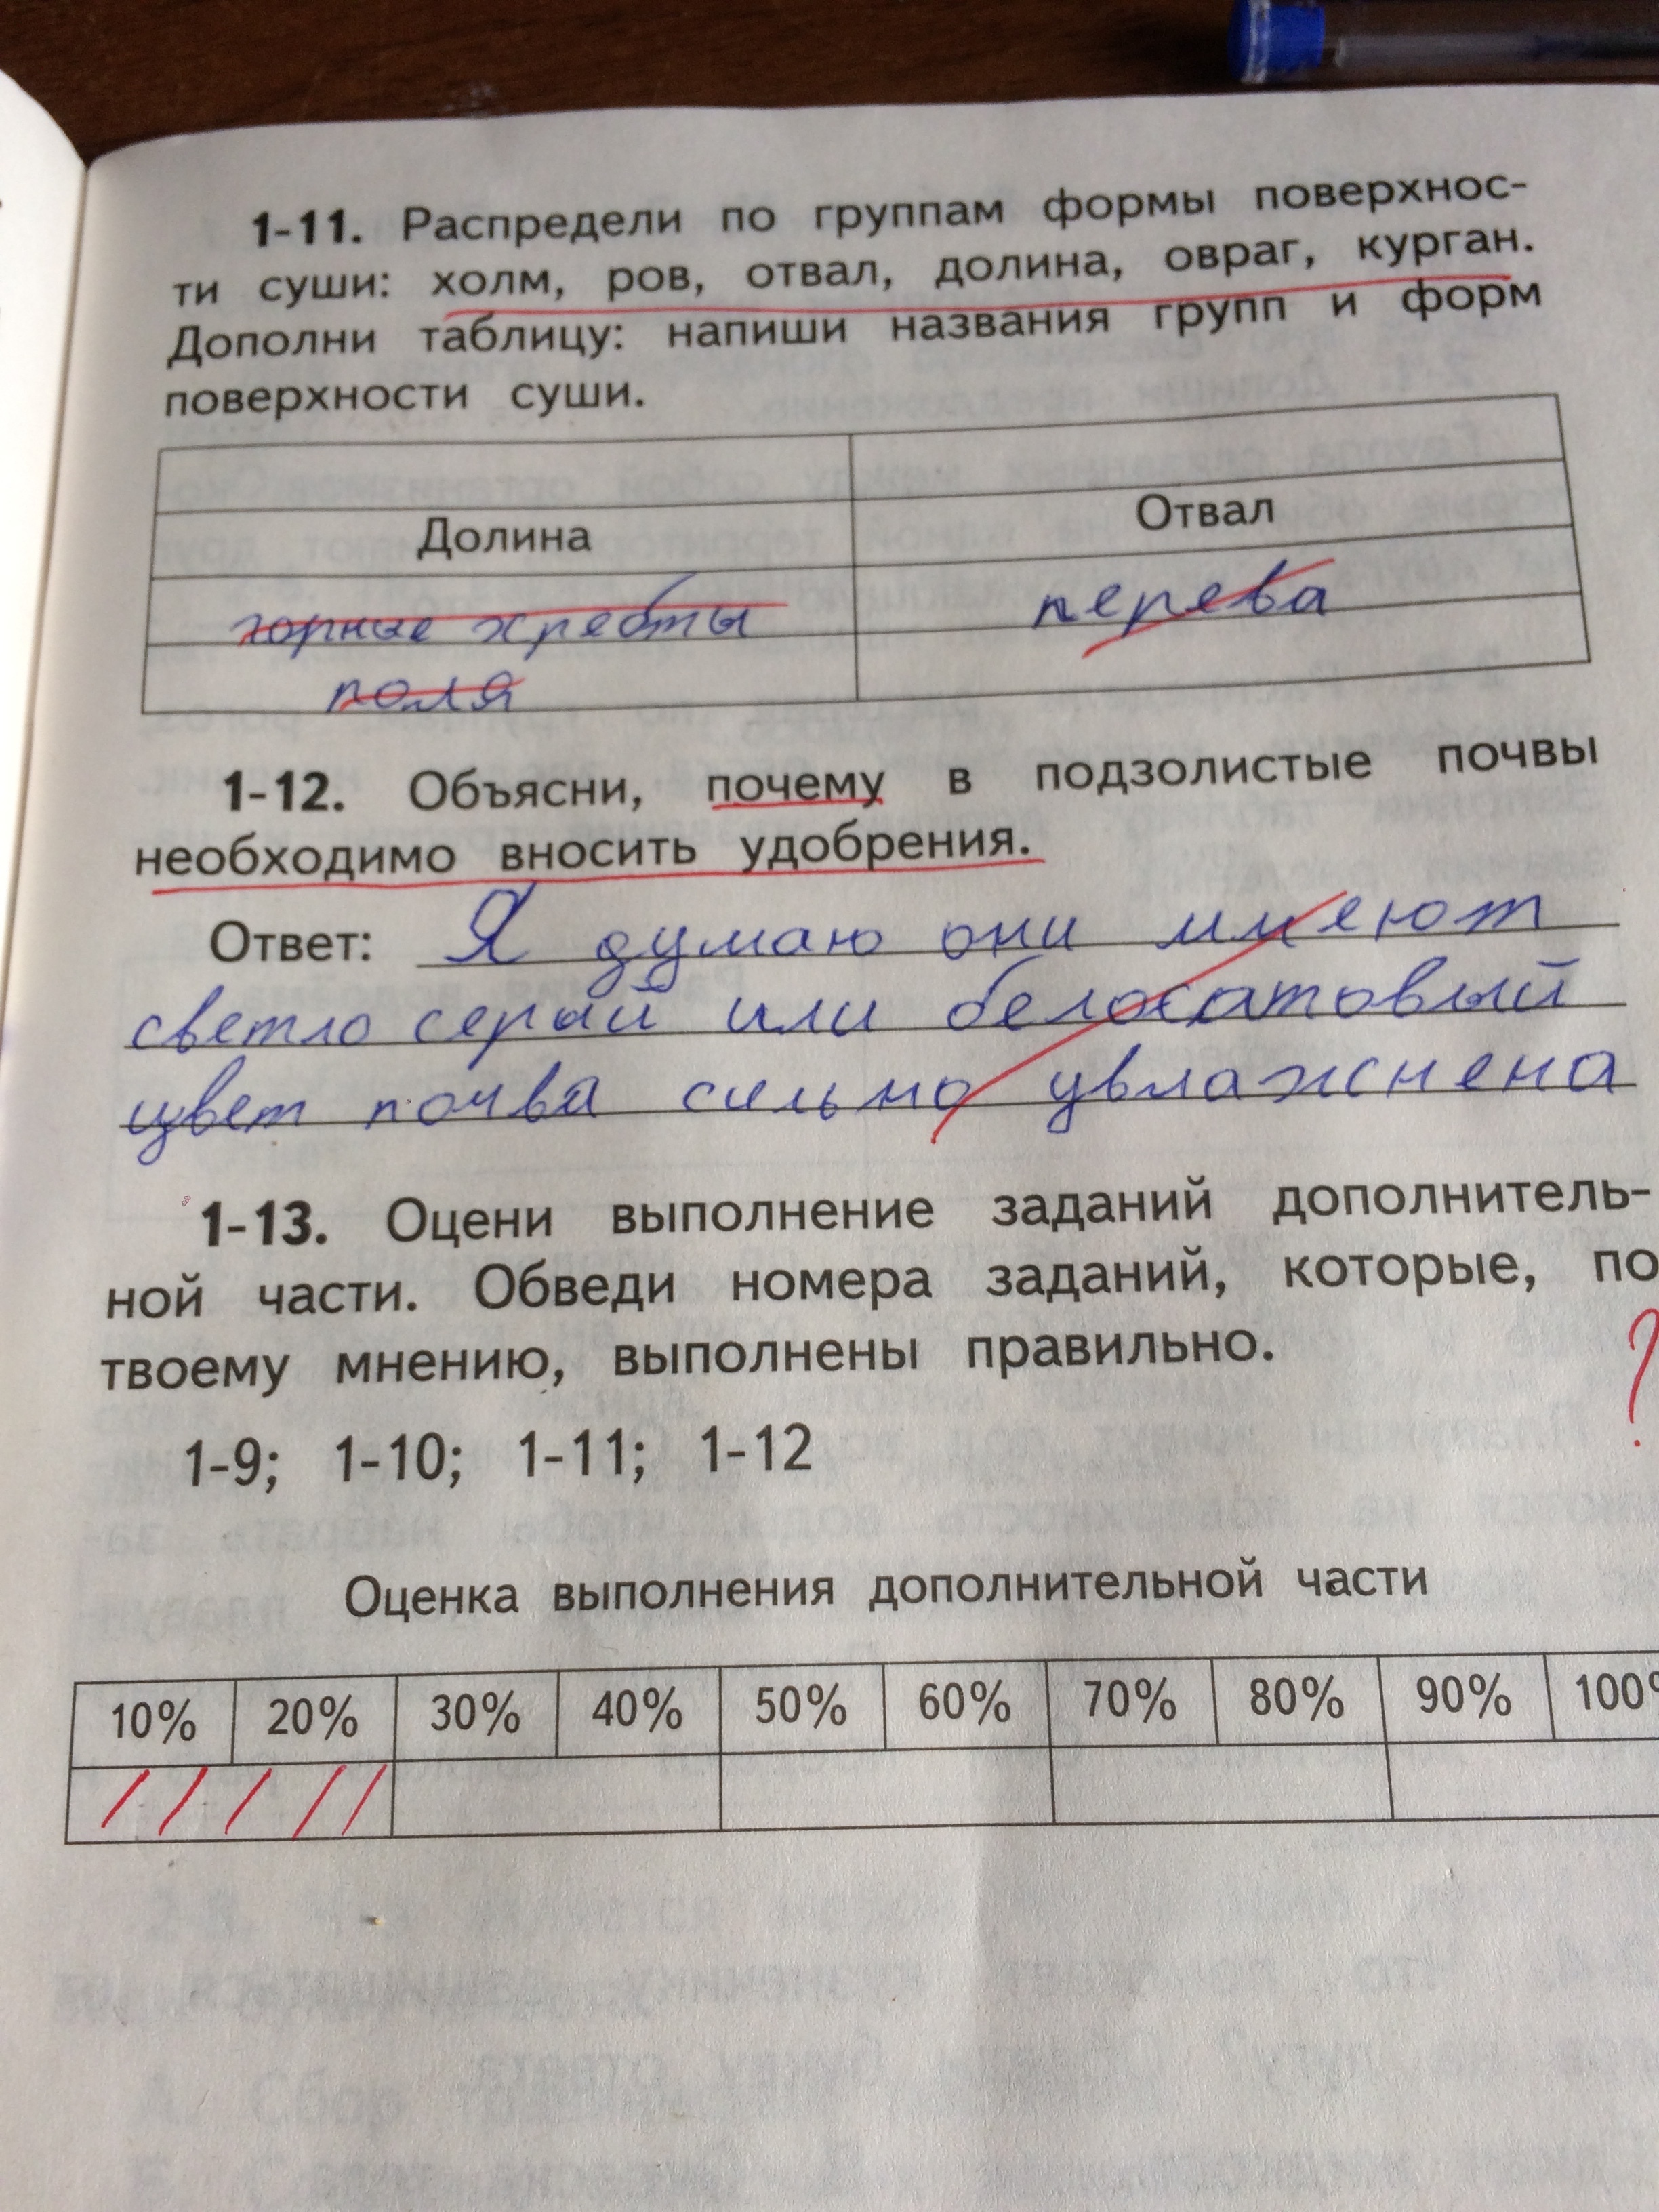 1-11. Распредели по группам формы поверхнос-
ти суши: холм, ров, отвал, долина, овраг, курган.
Дополни таблицу: напиши названия групп и форм
поверхности суши.
Долина Отвал
горные хребты перева
поля
1-12. Объясни, почему в подзолистые почвы
необходимо вносить удобрения.
Ответ: Я думаю они имеют
светло серый или белосатовый
цвет почва сильно увлажнена
1-13. Оцени выполнение заданий дополнитель-
ной части. Обведи номера заданий, которые, по
твоему мнению, выполнены правильно.
?
1-9; 1-10; 1-11; 1-12
Оценка выполнения дополнительной части
10% 20% 30% 40% 50% 60% 70% 80% 90% 100%